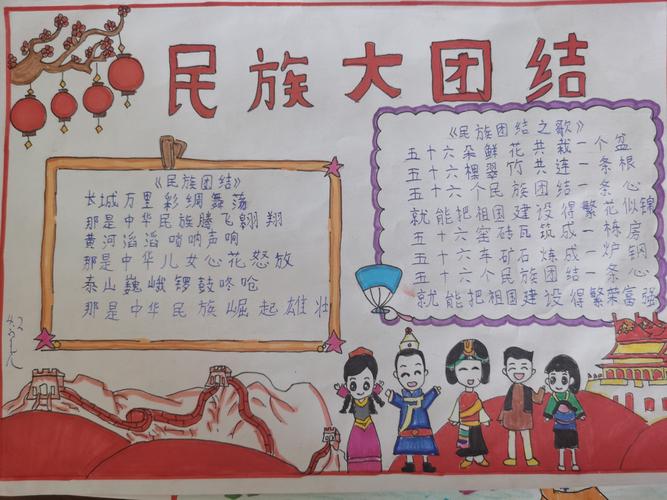 民族大团结
《民族团结》
长城万里彩绸舞荡
那是中华民族腾飞翱翔
黄河滔滔唢呐声响
那是中华儿女心花怒放
泰山巍峨锣鼓咚呛
那是中华民族崛起雄壮
《民族团结之歌》
五十六朵鲜花共栽一个盆
五十六棵翠竹共连一条根
五十六个民族团结一条心
就能把祖国建设得繁花似锦
五十六窑砖瓦筑成一栋房
五十六车矿石炼成一炉钢
五十六个民族团结一条心
就能把祖国建设得繁荣富强